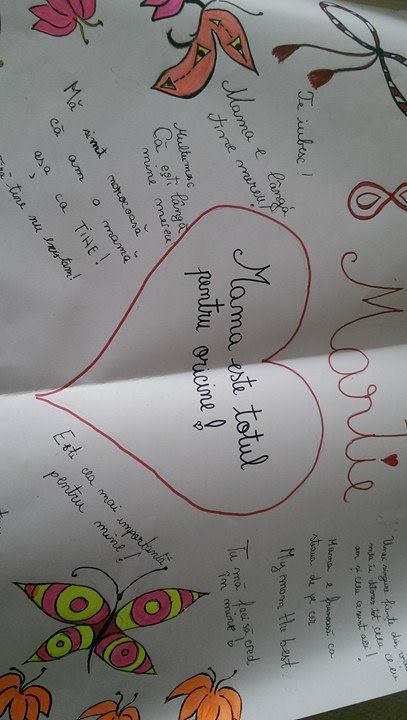 8 Martie
Te iubesc!
Mama e lângă
tine mereu!
Mulțumesc
Că ești lângă
mine mereu
Mă simt norocoasă
că am o mamă
așa ca TINE!
tine nu existam!
Mama este totul
pentru oricine!
Ești cea mai importantă
pentru mine!
Unei singure ființe din
mea îi datorez tot ceea ce eu
am și ceea ce sunt azi!
Mama e frumoasă ca
steaua de pe cer
My mom the best.
Tu mă faci să cred
în mine